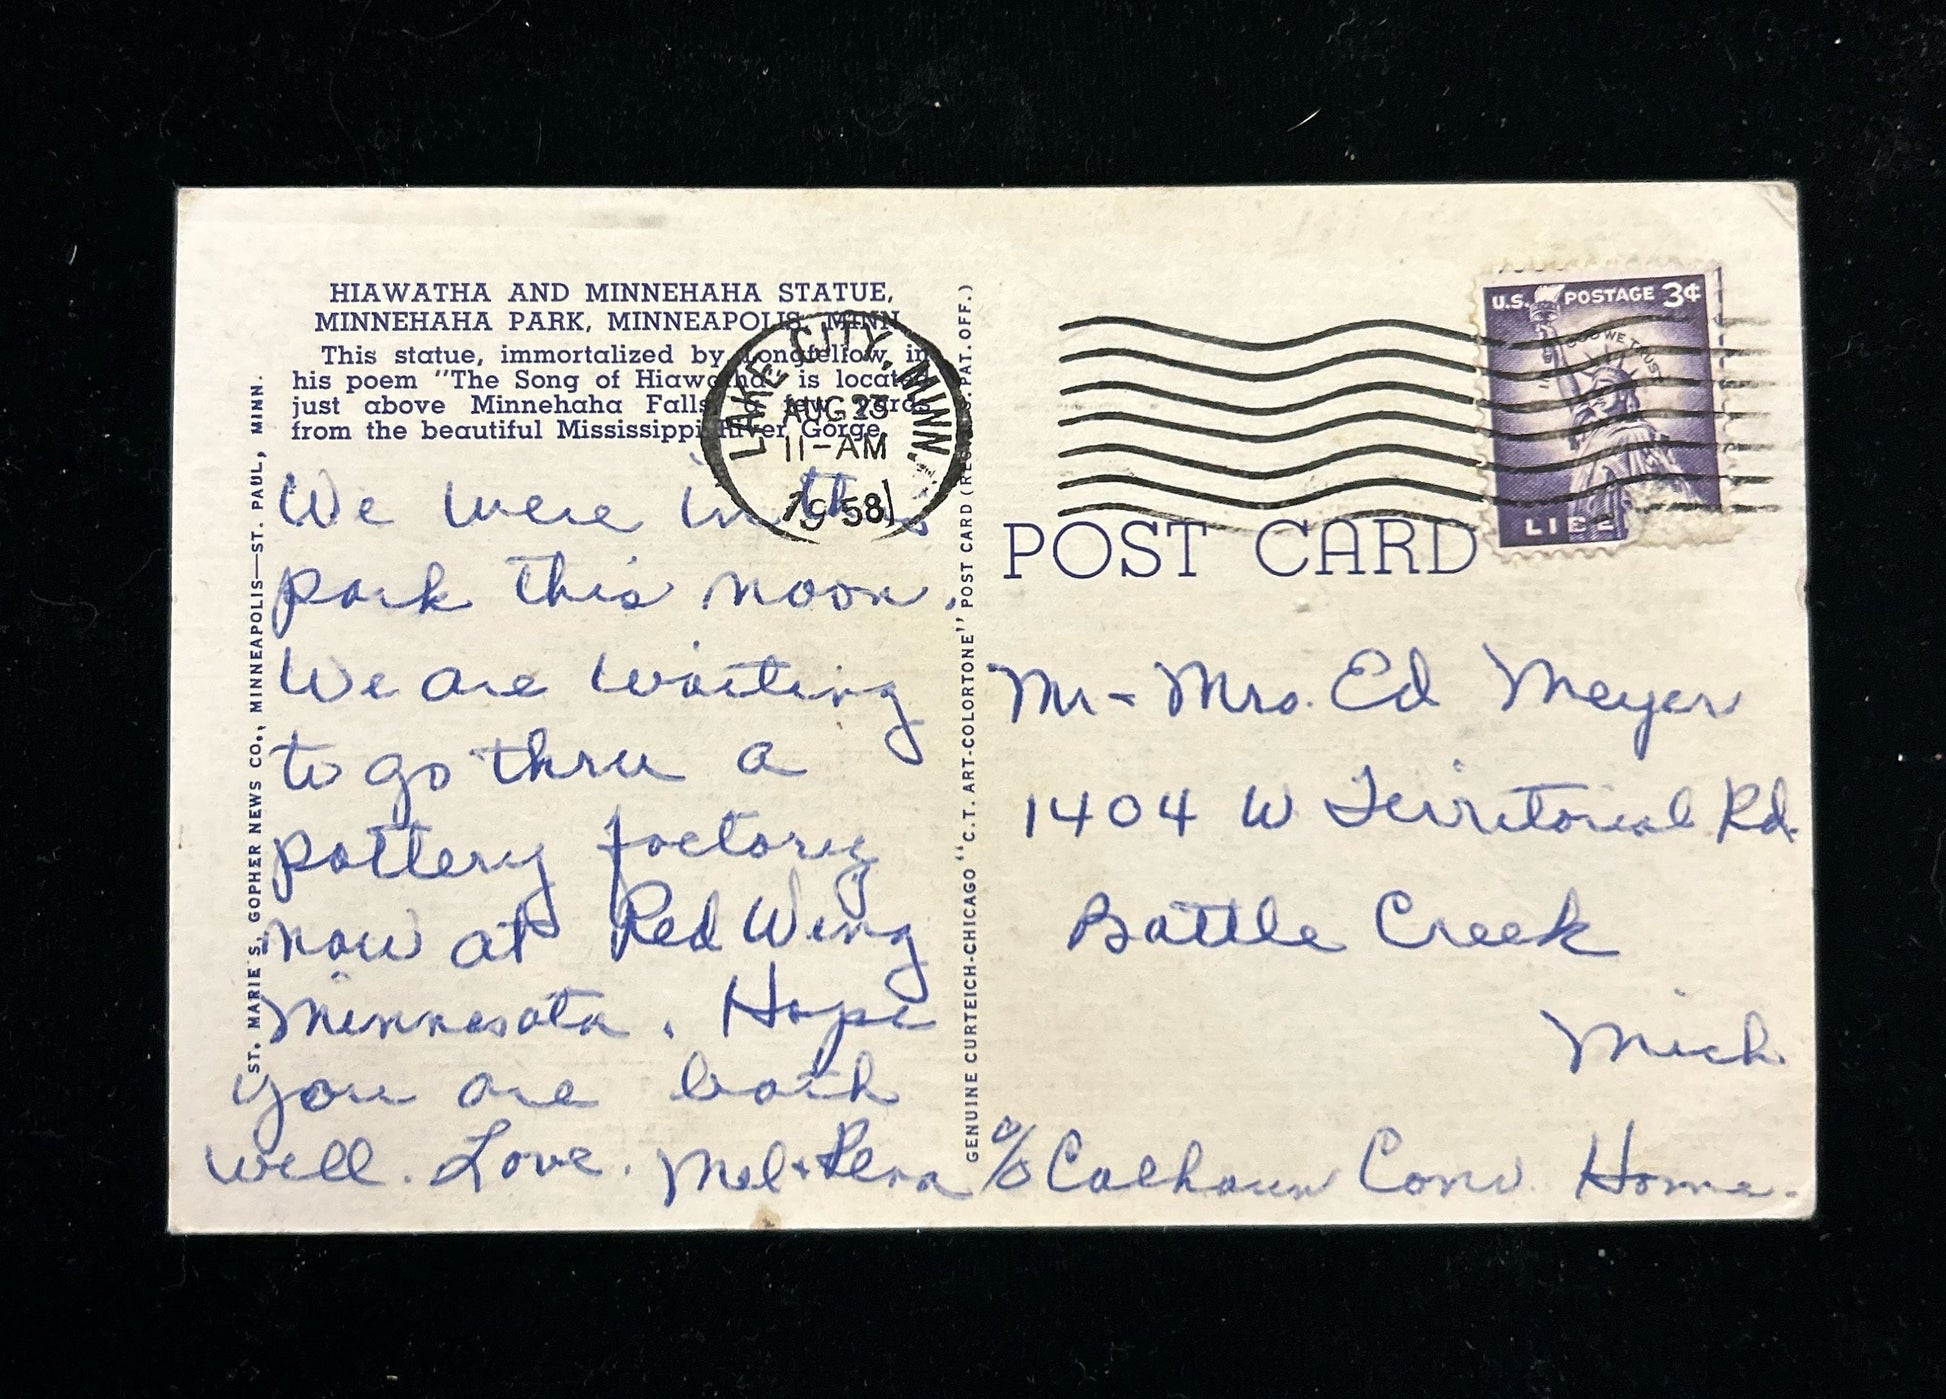 HIAWATHA AND MINNEHAHA STATUE,
MINNEHAHA PARK, MINNEAPOLIS, MINN.
This statue, immortalized by Longfellow in
his poem "The Song of Hiawatha" is located
just above Minnehaha Falls a few yards
from the beautiful Mississippi River Gorge.
We were in this
park this noon.
We are waiting
to go thru a
pottery factory
now at Red Wing
Minnesota. Hope
you are both
well. Love. Mel + Rena
ST. MARIE'S GOPHER NEWS CO., MINNEAPOLIS—ST. PAUL, MINN.
LAKE CITY, MINN.
AUG 23
11-AM
1958
GENUINE CURTEICH-CHICAGO "C.T. ART-COLORTONE" POST CARD (REG. U.S. PAT. OFF.)
U.S. POSTAGE 3¢
IN GOD WE TRUST
LIBE
POST CARD
Mr - Mrs. Ed Meyer
1404 W Territorial Rd.
Battle Creek
Mich.
c/o Calhoun Conv Home.